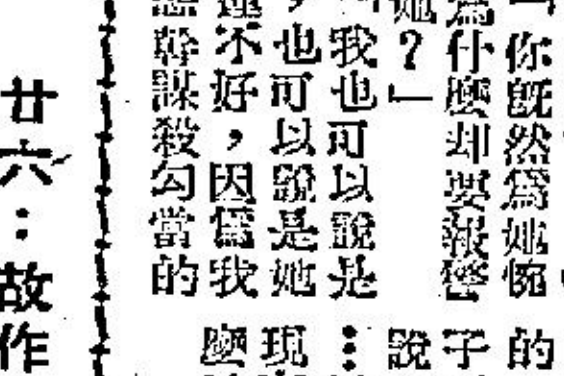 「你既然爲她惋
爲什麼却要報警
她？」
「我也可以說是
，也可以說是她
運不好，因爲我
幹謀殺勾當的
的
子
說
…
現
麼
廿六：故作